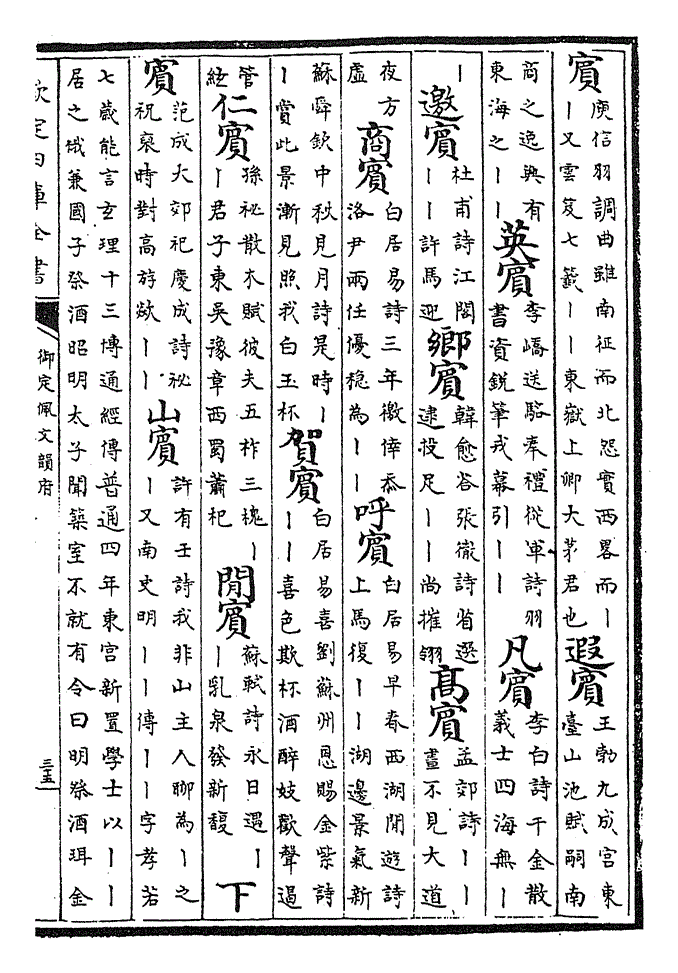 賓 庾信羽調曲雖南征而北怨實西畧而丨
丨又雲笈七籤丨丨東嶽上卿大茅君也
遐賓 王勃九成宮東
臺山池賦嗣南
商之逸興有
東海之丨丨
英賓 李嶠送駱奉禮從軍詩羽
書資銳筆戎幕引丨丨
凡賓 李白詩千金散
義士四海無丨
丨
邀賓 杜甫詩江閣
丨丨許馬迎
鄉賓 韓愈答張徹詩省選
逮投足丨丨尚摧翎
高賓 孟郊詩丨丨
晝不見大道
夜方
虛
商賓 白居易詩三年徼倖忝
洛尹兩任優穩為丨丨
呼賓 白居易早春西湖閒遊詩
上馬復丨丨湖邊景氣新
蘇舜欽中秋見月詩是時丨
丨賞此景漸見照我白玉杯
賀賓 白居易喜劉蘇州恩賜金紫詩
丨丨喜色欺杯酒醉妓歡聲遏
管
絃
仁賓 孫祕散木賦彼夫五柞三槐丨
丨君子東吳豫章西蜀蕭杞
閒賓 蘇軾詩永日遇丨
丨乳泉發新馥
下
賓 范成大郊祀慶成詩祕
祝褒時對高斿燄丨丨
山賓 許有壬詩我非山主人聊為丨之
丨又南史明丨丨傳丨丨字孝若
七歲能言玄理十三博通經傳普通四年東宮新置學士以丨丨
居之俄兼國子祭酒昭明太子聞築室不就有令曰明祭酒珥金
欽定四庫全書
御定佩文韻府
三五